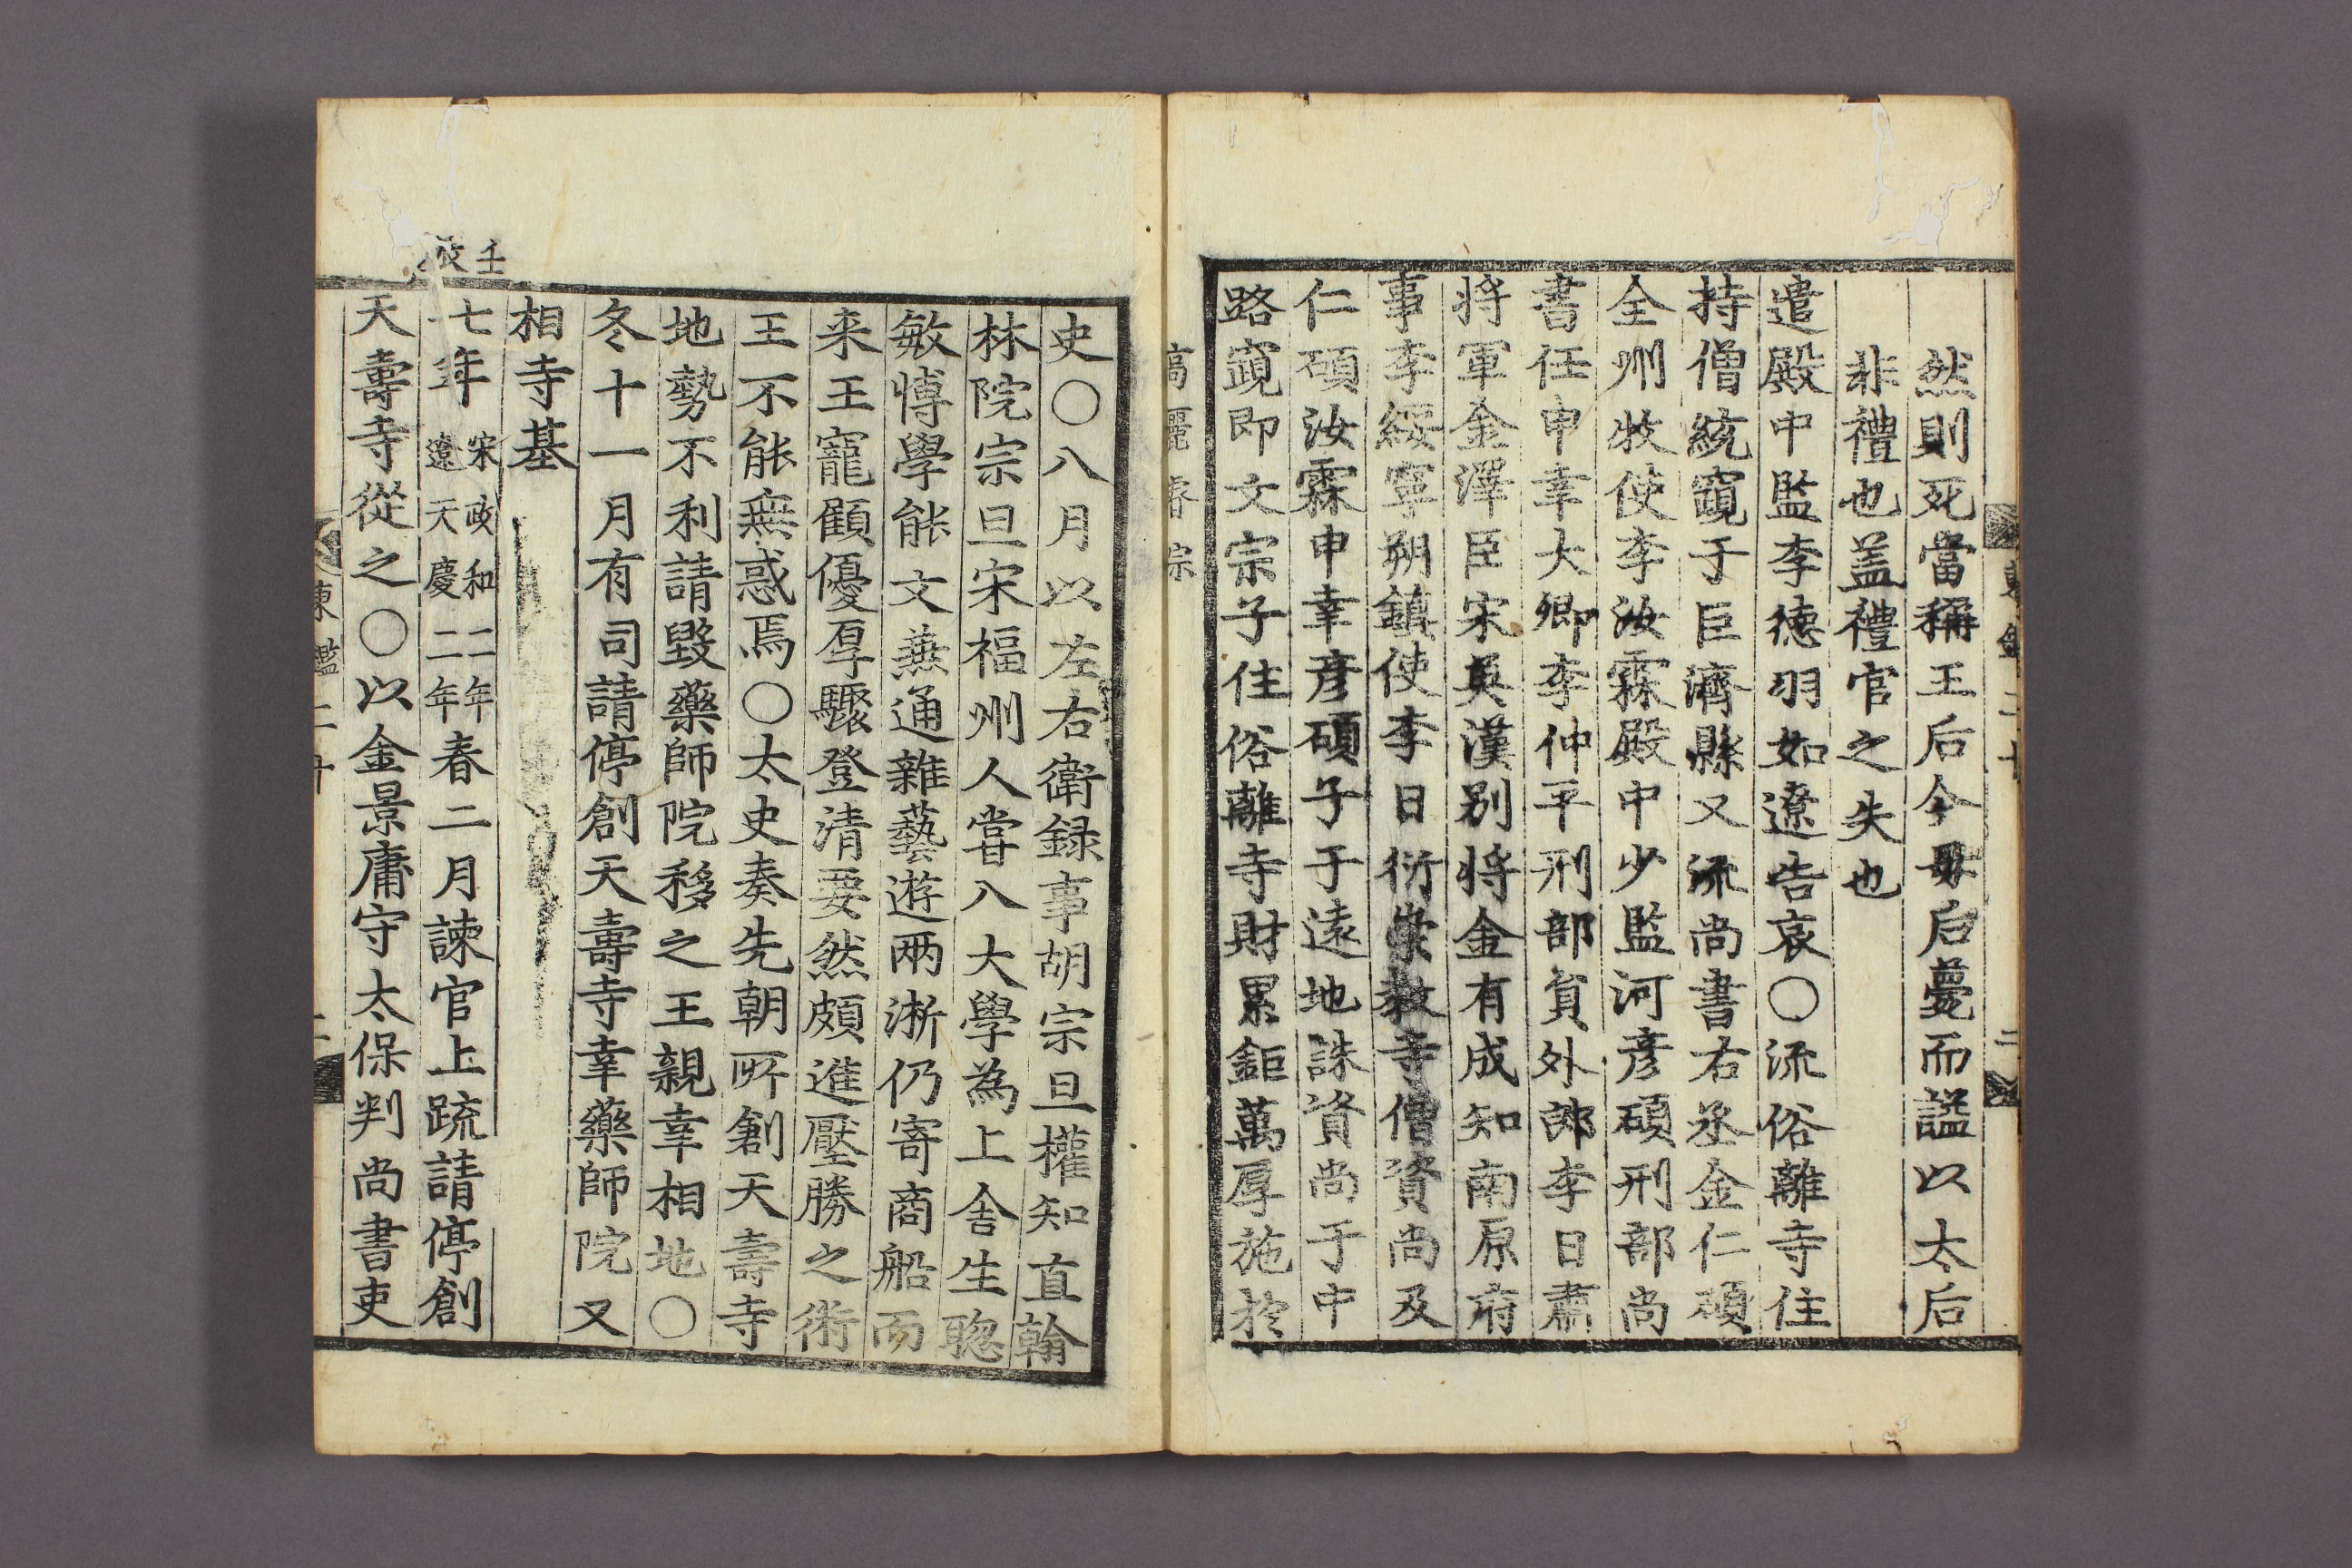 然則死當稱王后今毋后薨而謚以太后
非禮也盖禮官之失也
遣殿中監李德羽如遼告哀○流俗離寺住
持僧統窺于巨濟縣又流尚書右丞金仁碩
全州牧使李汝霖殿中少監河彦碩刑部尚
書任申幸大卿李仲平刑部貟外郎李日肅
將軍金澤臣宋英漢别將金有成知南原府
事李綏寧朔鎮使李日衍崇教寺僧資尚及
仁碩汝霖申幸彦碩子于遠地誅資尚于中
路窺即文宗子住俗離寺財累鉅萬厚施於
高麗睿宗
史○八月以左右衛録事胡宗旦權知直翰
林院宗旦宋福州人甞入大學為上舍生聦
敏愽學能文兼通雜藝遊兩淅仍寄商船而
来王寵顧優厚驟登清要然頗進壓勝之術
王不能無惑焉○太史奏先朝所創天壽寺
地勢不利請毀藥師院移之王親幸相地○
冬十一月有司請停創天壽寺幸藥師院又
相寺基
壬辰
七年宋政和二年遼天慶二年春二月諫官上疏請停創
天壽寺從之○以金景庸守太保判尚書吏